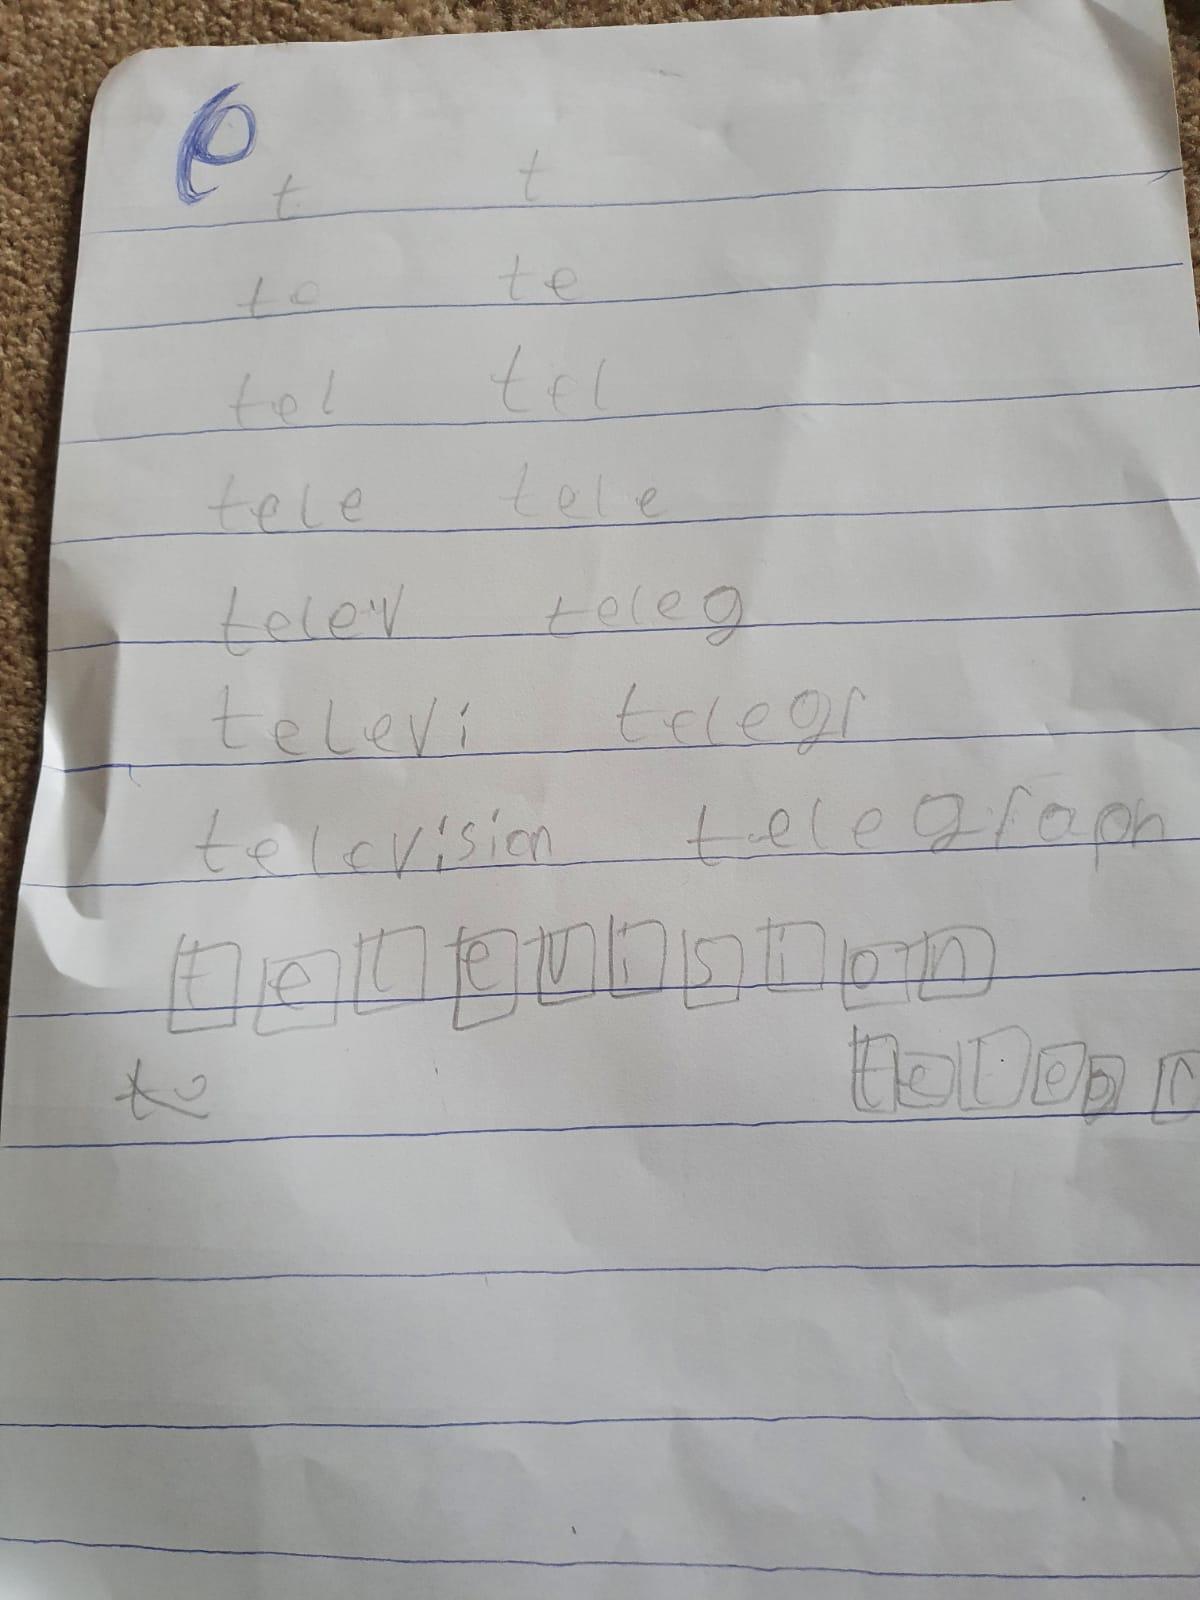 e
t t
te te
tel tel
tele tele
telev teleg
televi telegr
television telegraph
television
te teleg r